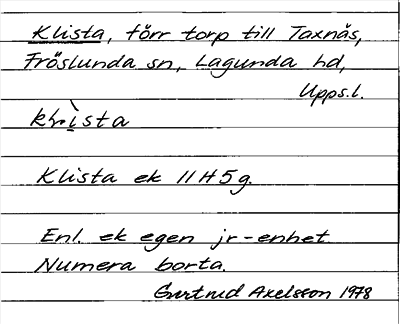 Klista, förr torp till Taxnäs,
Fröslunda sn, Lagunda hd,
Upps.l.
klìsta
Klista ek 11H5g.
Enl. ek egen jr-enhet
Numera borta.
Gertrud Axelsson 1978